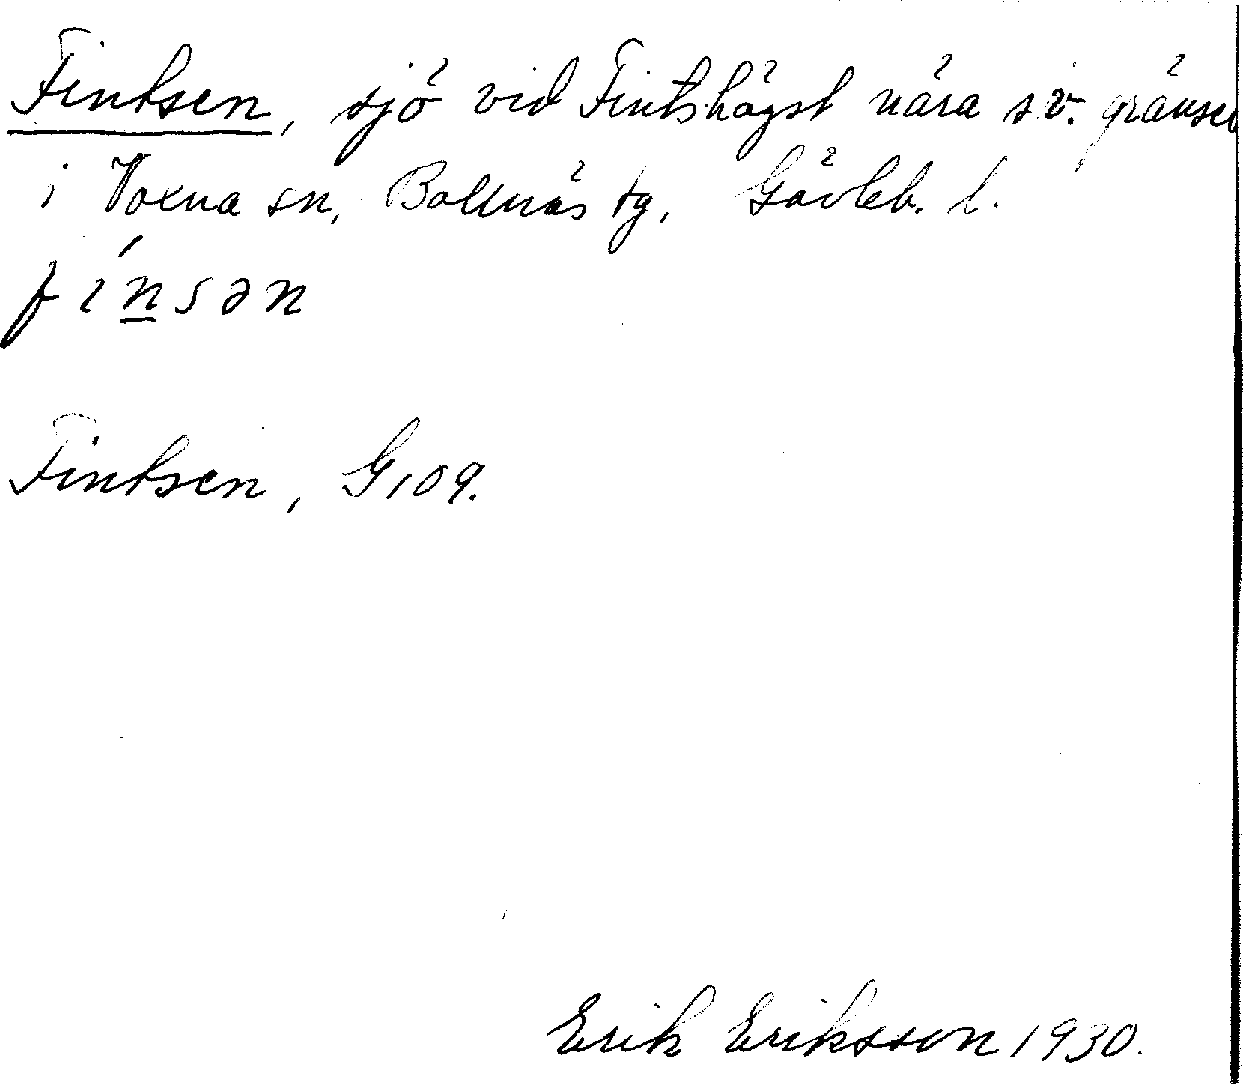 Fintsen, sjö vid Fintshögst nära s.v. gränsen
i Voxna sn, Bollnäs tg, Gävleb. l.
fínsən
Fintsen, G109.
Erik Eriksson 1930.